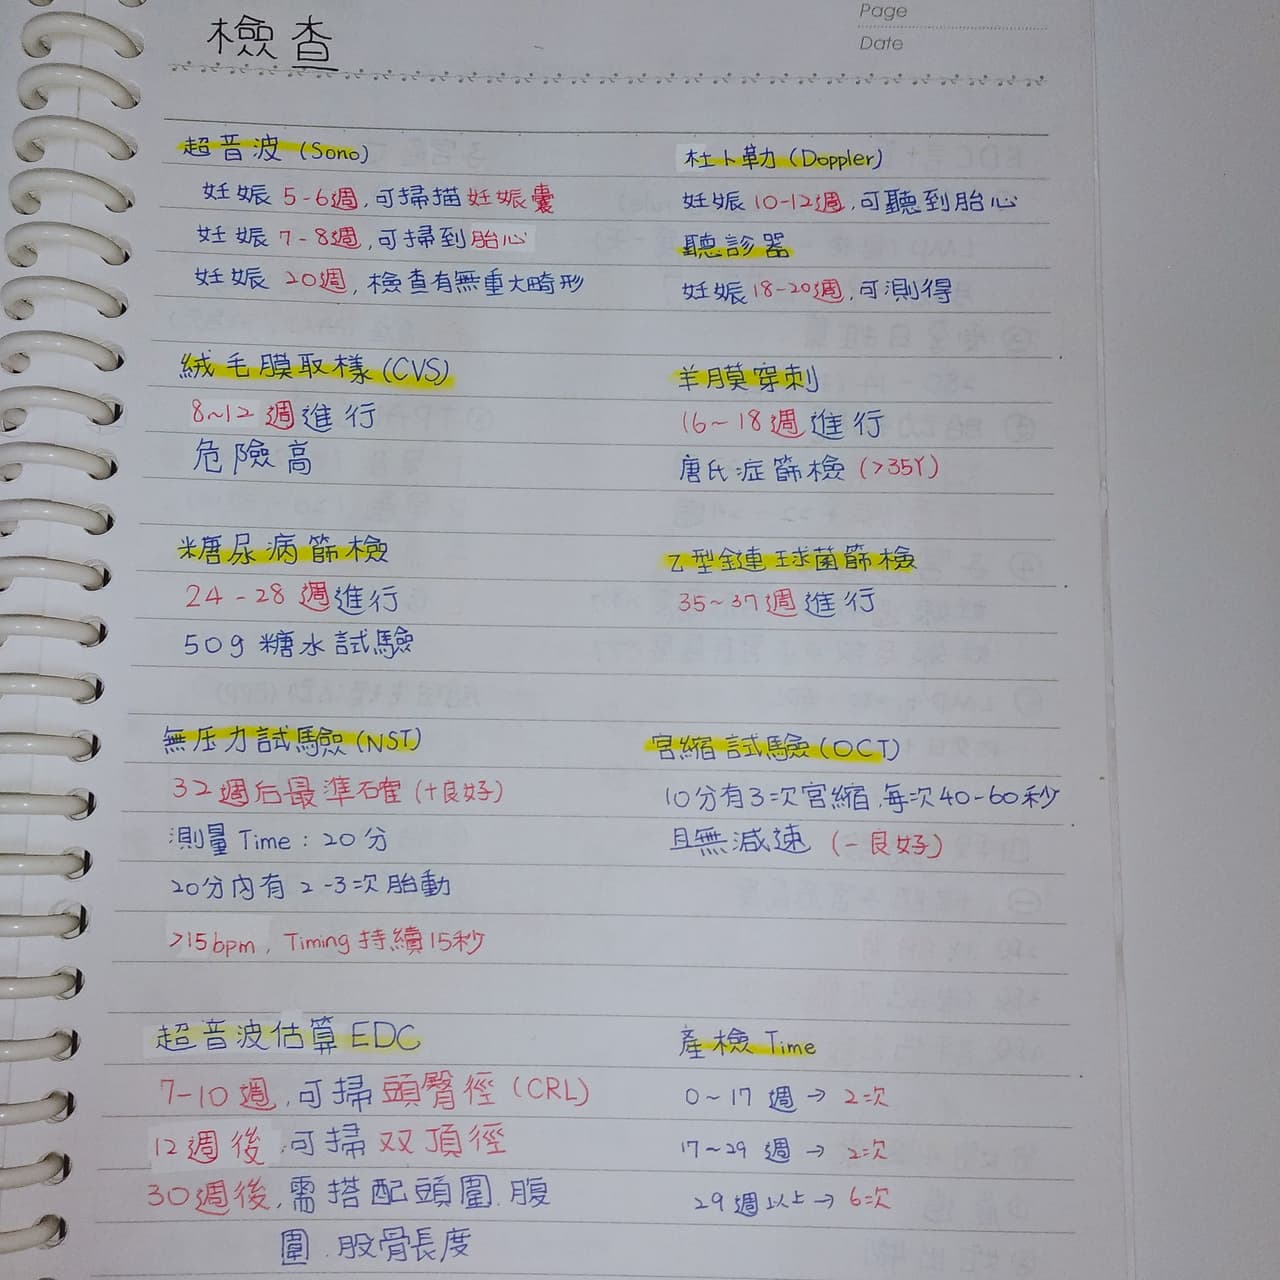 Page
Date
檢查
超音波(Sono)
妊娠5-6週,可掃描妊娠囊
妊娠7-8週,可掃到胎心
妊娠20週,檢查有無重大畸形
杜卜勒(Doppler)
妊娠10-12週,可聽到胎心
聽診器
妊娠18-20週,可測得
絨毛膜取樣(CVS)
8~12週進行
危險高
羊膜穿刺
16~18週進行
唐氏症篩檢(>35Y)
糖尿病篩檢
24-28週進行
50g糖水試驗
乙型鏈球菌篩檢
35~37週進行
無压力試驗(NST)
32週后最準確(+良好)
測量Time:20分
20分內有2-3次胎動
>15bpm,Timing持續15秒
宮縮試驗(OCT)
10分有3次宮縮,每次40-60秒
且無減速(-良好)
超音波估算EDC
7-10週,可掃頭臀徑(CRL)
12週後,可掃双頂徑
30週後,需搭配頭圍.腹
圍.股骨長度
產檢Time
0~17週→2次
17~29週→2次
29週以上→6次